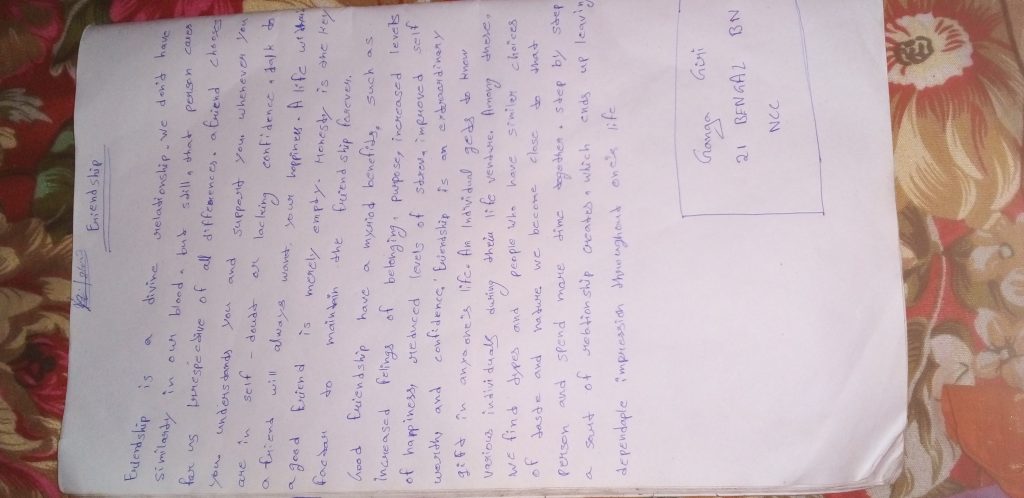 Friendship
Friendship is a divine relationship. We don't have
similarity in our blood. but still, that person cares
for us irrespective of all differences. a friend chooses
you, understands you and support you whenever you
are in self-doubt or lacking confidence. talk to
a friend will always want your happiness. A life without
a good friend is merely empty. Honesty is the key
factor to maintain the friend ship forever.
Good friendship have a myriod benefits, such as
increased felings of belonging, purpose, increased levels
of happiness, reduced levels of stress, improved self
worth, and confidence. Friendship is an extraordinary
gift in anyone's life. An Individual gets to know
various individuals during their life venture. Among these,
we find types and people who have similer choices
of taste and nature we become close to that
person and spend more time together. step by step
a sort of relationship creates, which ends up leaving
dependaple impression throughout one's life
Ganga Giri
21 BENGAL BN
NCC